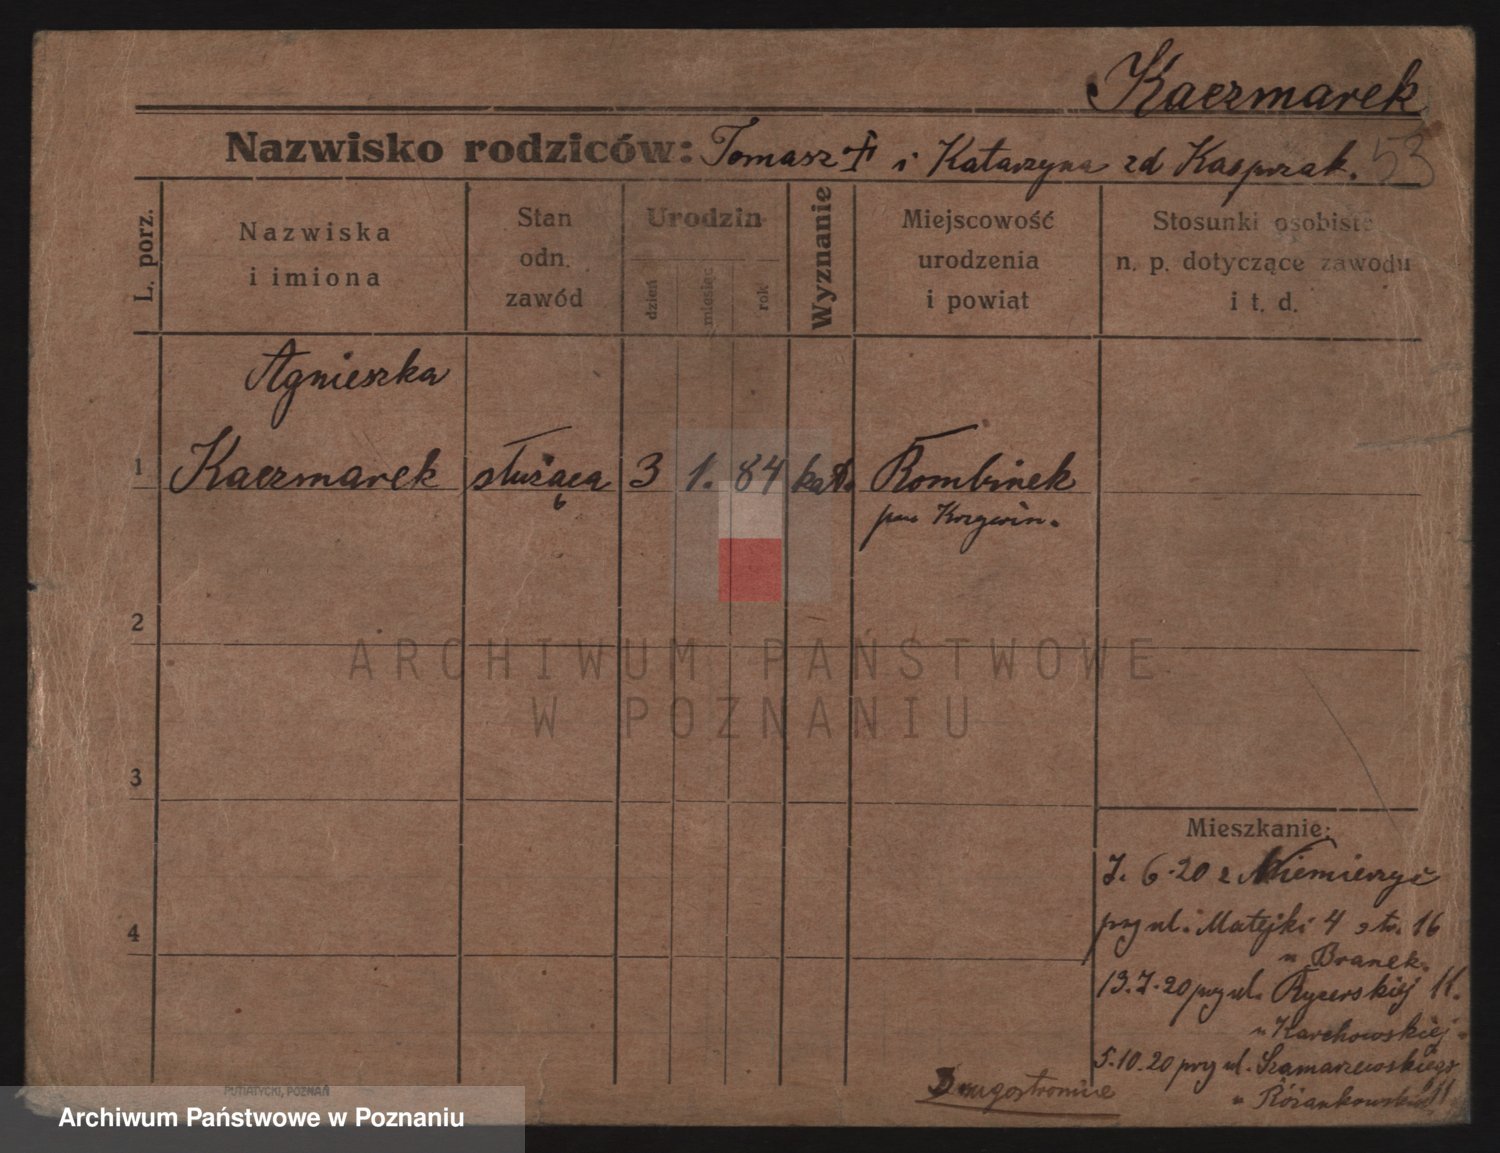 Kaczmarek
Nazwisko rodziców: Tomasz i Katarzyna zd Kasprzak.
53
L. porz.
Nazwiska
i imiona
Stan
odn.
zawód
Urodzin
dzień
miesiąc
rok
Wyznanie
Miejscowość
urodzenia
i powiat
Stosunki osobiste
n. p. dotyczące zawodu
i t. d.
Agnieszka
1 Kaczmarek służąca 3 1. 84 kat. Rombinek
2
ARCHIWUM PAŃSTWOWE
W POZNANIU
3
Mieszkanie:
7. 6.20 z Niemierzyc
4
przy ul. Matejki 4 str. 16
u Branek.
13.7.20 przy ul. Rycerskiej 11.
u Karchowskiej.
5.10.20 przy ul. Szamarzewskiego
PUTIATYCKI, POZNAŃ
Archiwum Państwowe w Poznaniu